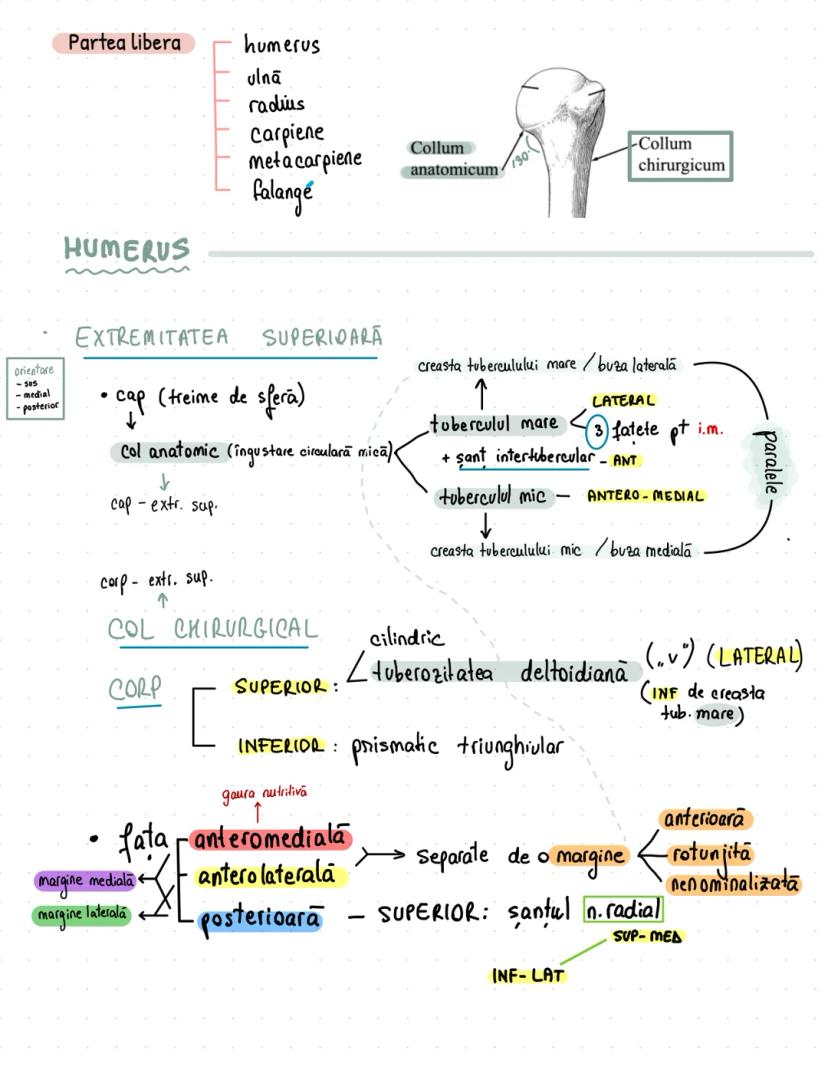 Partea libera
humerus
ulnă
radius
carpiene
metacarpiene
falange
Collum
anatomicum
130°
Collum
chirurgicum
HUMERUS
EXTREMITATEA SUPERIOARĂ
orientare
- sus
- medial
- posterior
• cap (treime de sferă)
col anatomic (îngustare circulară mică)
cap - extr. sup.
creasta tuberculului mare / buza laterală
tuberculul mare
LATERAL
3 fațete pt i.m.
+ șanț intertubercular - ANT
tuberculul mic - ANTERO-MEDIAL
creasta tuberculului mic / buza medială
paralele
corp - extr. sup.
COL CHIRURGICAL
CORP
SUPERIOR:
cilindric
tuberozitatea deltoidiană („v") (LATERAL)
(INF de creasta
tub. mare)
INFERIOR: prismatic triunghiular
gaura nutritivă
• fața
anteromedială
anterolaterală
posterioară - SUPERIOR: șanțul n. radial
margine medială
margine laterală
separate de o margine
anterioară
rotunjită
nenominalizată
SUP-MED
INF-LAT